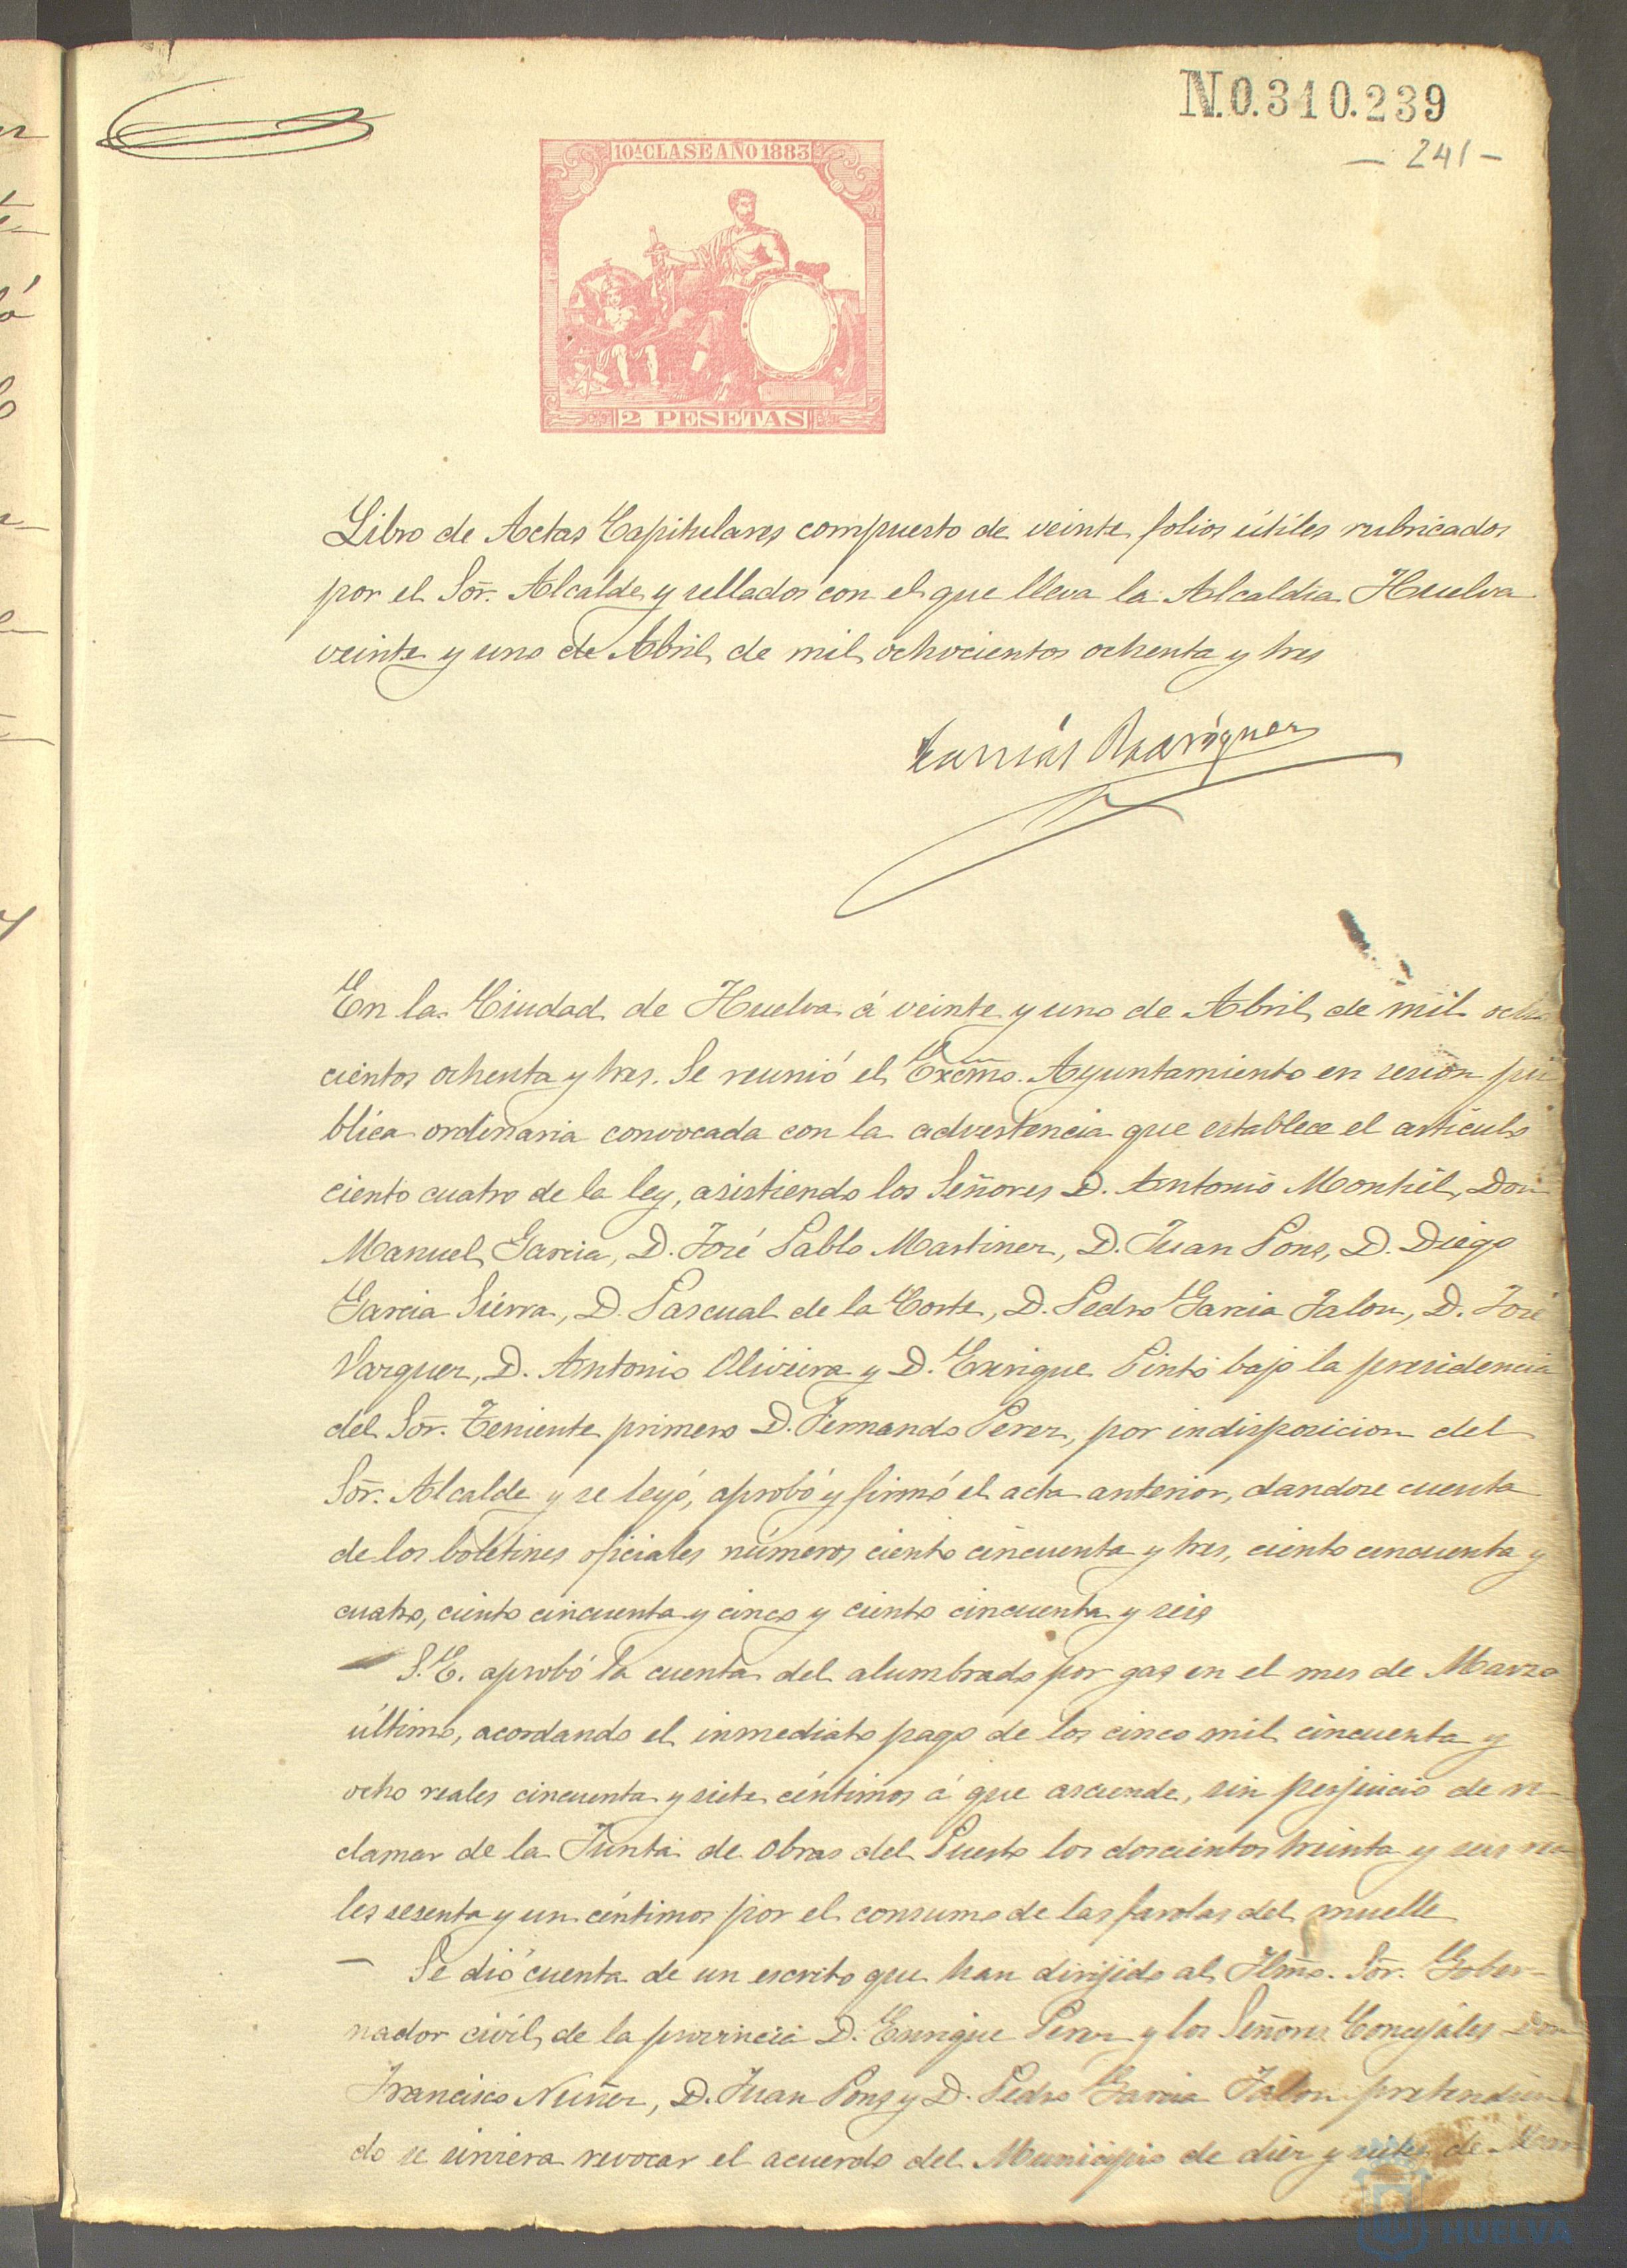 N.0.310.239
— 241 —
10ª CLASE AÑO 1883
2 PESETAS
Libro de Actas Capitulares compuesto de veinte folios útiles rubricados
por el Sor. Alcalde y sellados con el que lleva la Alcaldia. Huelva
veinte y uno de Abril de mil ochocientos ochenta y tres
Rodriguez
En la Ciudad de Huelva á veinte y uno de Abril de mil ocho
cientos ochenta y tres. Se reunió el Excmo. Ayuntamiento en sesion pú
blica ordinaria convocada con la advertencia que establece el articulo
ciento cuatro de la ley, asistiendo los Señores D. Antonio Montiel, Don
Manuel Garcia, D. José Pablo Martinez, D. Juan Pons, D. Diego
Garcia Sierra, D. Pascual de la Corte, D. Pedro Garcia Jalon, D. José
Vazquez, D. Antonio Oliveira y D. Enrique Pinto bajo la presidencia
del Sor. Teniente primero D. Fernando Perez, por indisposicion del
Sor. Alcalde y se leyó, aprobó y firmó el acta anterior, dandose cuenta
de los boletines oficiales números ciento cincuenta y tres, ciento cincuenta y
cuatro, ciento cincuenta y cinco y ciento cincuenta y seis
S.E. aprobó la cuenta del alumbrado por gas en el mes de Marzo
último, acordando el inmediato pago de los cinco mil cincuenta y
ocho reales cincuenta y siete céntimos á que asciende, sin perjuicio de re
clamar de la Junta de Obras del Puerto los doscientos treinta y seis rea
les sesenta y un céntimos por el consumo de las farolas del muelle
— Se dió cuenta de un escrito que han dirijido al Ilmo. Sor. Gober-
nador civil de la provincia D. Enrique Perez y los Señores Concejales Don
Francisco Nuñez, D. Juan Pons y D. Pedro Garcia Jalon pretendien
do se sirviera revocar el acuerdo del Municipio de diez y siete de Mar
HUELVA